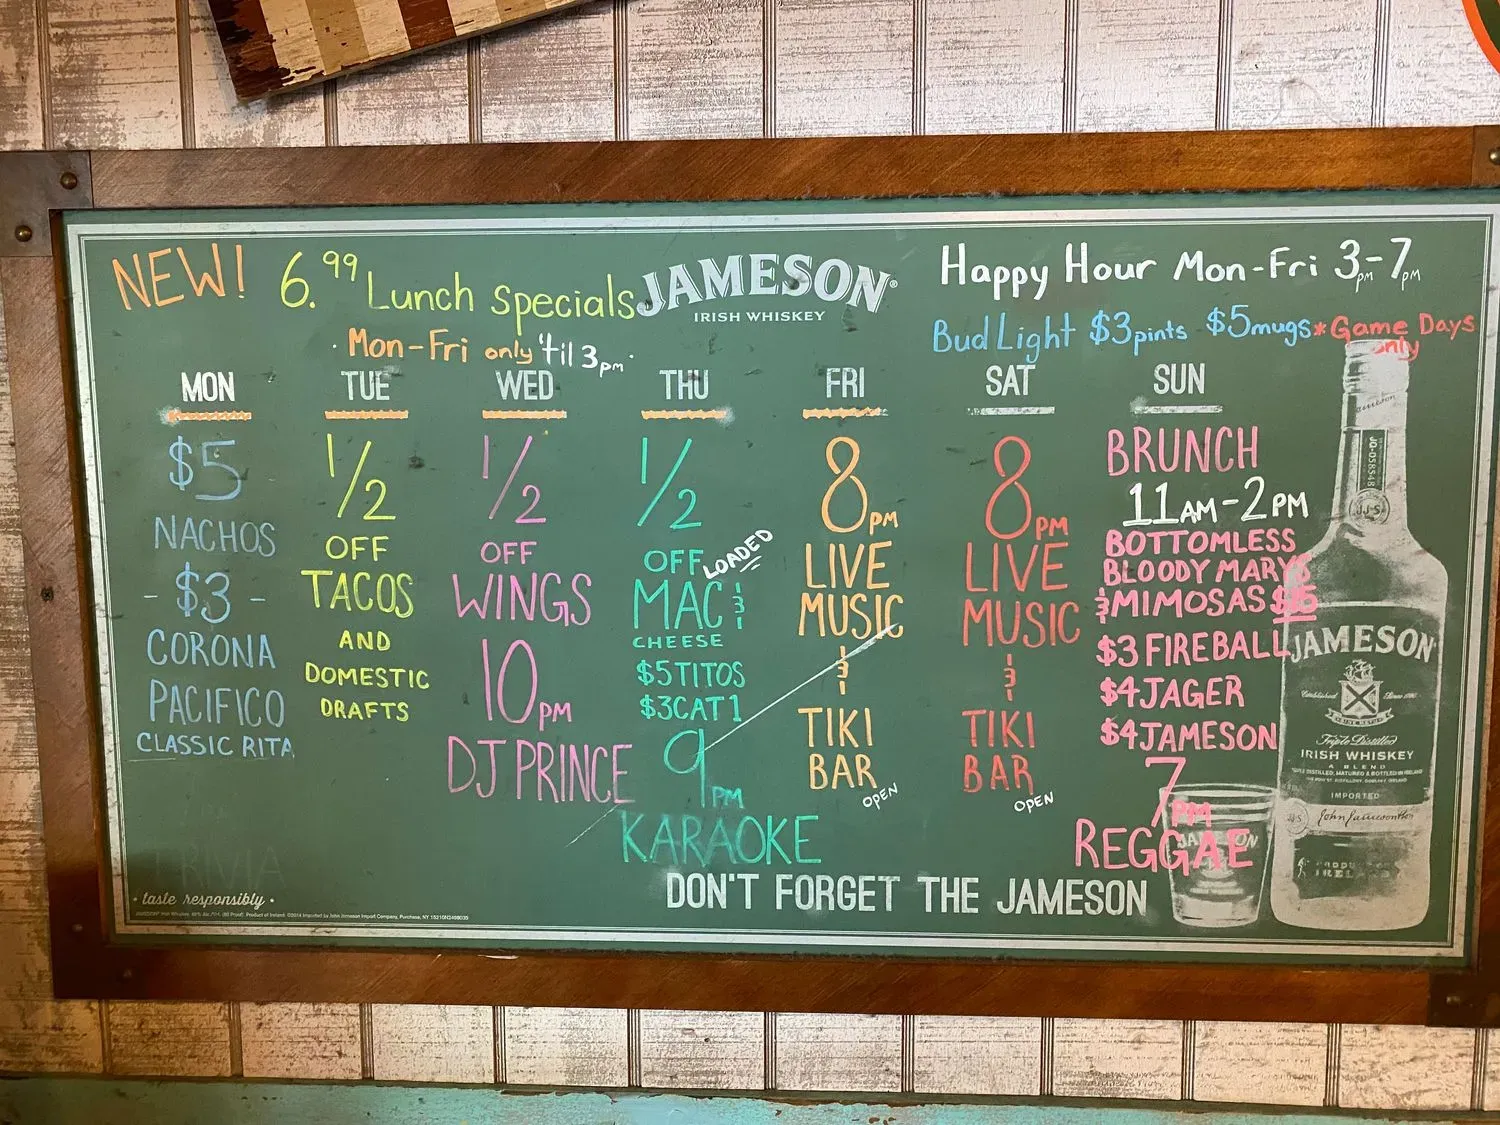 NEW! 6.99 Lunch Specials
· Mon-Fri only 'til 3pm ·
JAMESON®
IRISH WHISKEY
Happy Hour Mon-Fri 3pm-7pm
Bud Light $3pints $5mugs *Game Days only
MON
$5
NACHOS
- $3 -
CORONA
PACIFICO
CLASSIC RITA
TRIVIA
TUE
1/2
OFF
TACOS
AND
DOMESTIC
DRAFTS
WED
1/2
OFF
WINGS
10PM
DJ PRINCE
THU
1/2
OFF LOADED
MAC &
CHEESE
$5 TITOS
$3 CAT 1
9PM
KARAOKE
FRI
8PM
LIVE
MUSIC
&
TIKI
BAR
OPEN
SAT
8PM
LIVE
MUSIC
&
TIKI
BAR
OPEN
SUN
BRUNCH
11AM-2PM
BOTTOMLESS
BLOODY MARYS
& MIMOSAS $15
$3 FIREBALL
$4 JAGER
$4 JAMESON
7PM
REGGAE
JAMESON
Established Since 1780
Triple Distilled
IRISH WHISKEY
A BLEND
IMPORTED
John Jameson
JAMESON
DON'T FORGET THE JAMESON
· taste responsibly ·